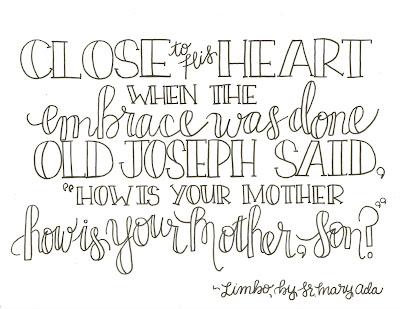 CLOSE to His HEART
WHEN THE
embrace was done
OLD JOSEPH SAID,
"HOW IS YOUR MOTHER
how is your Mother, Son?"
~Limbo, by Sr. Mary Ada